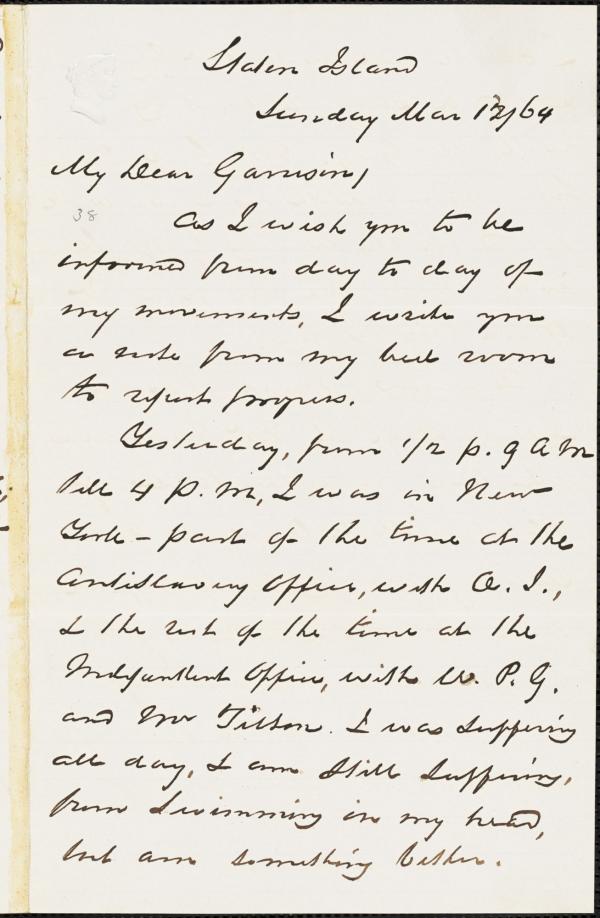 Staten Island
Sunday Mar 13/64
My Dear Garrison,
38
As I wish you to be
informed from day to day of
my movements, I write you
a note from my bed room
to report progress.
Yesterday, from 1/2 p. 9 A M
till 4 P. M., I was in New
York - part of the time at the
Antislavery Office, with O. J.,
& the rest of the time at the
Independent Office, with W. P. G.
and Mr Tilton. I was suffering
all day, & am still suffering,
from swimming in my head,
but am something better.